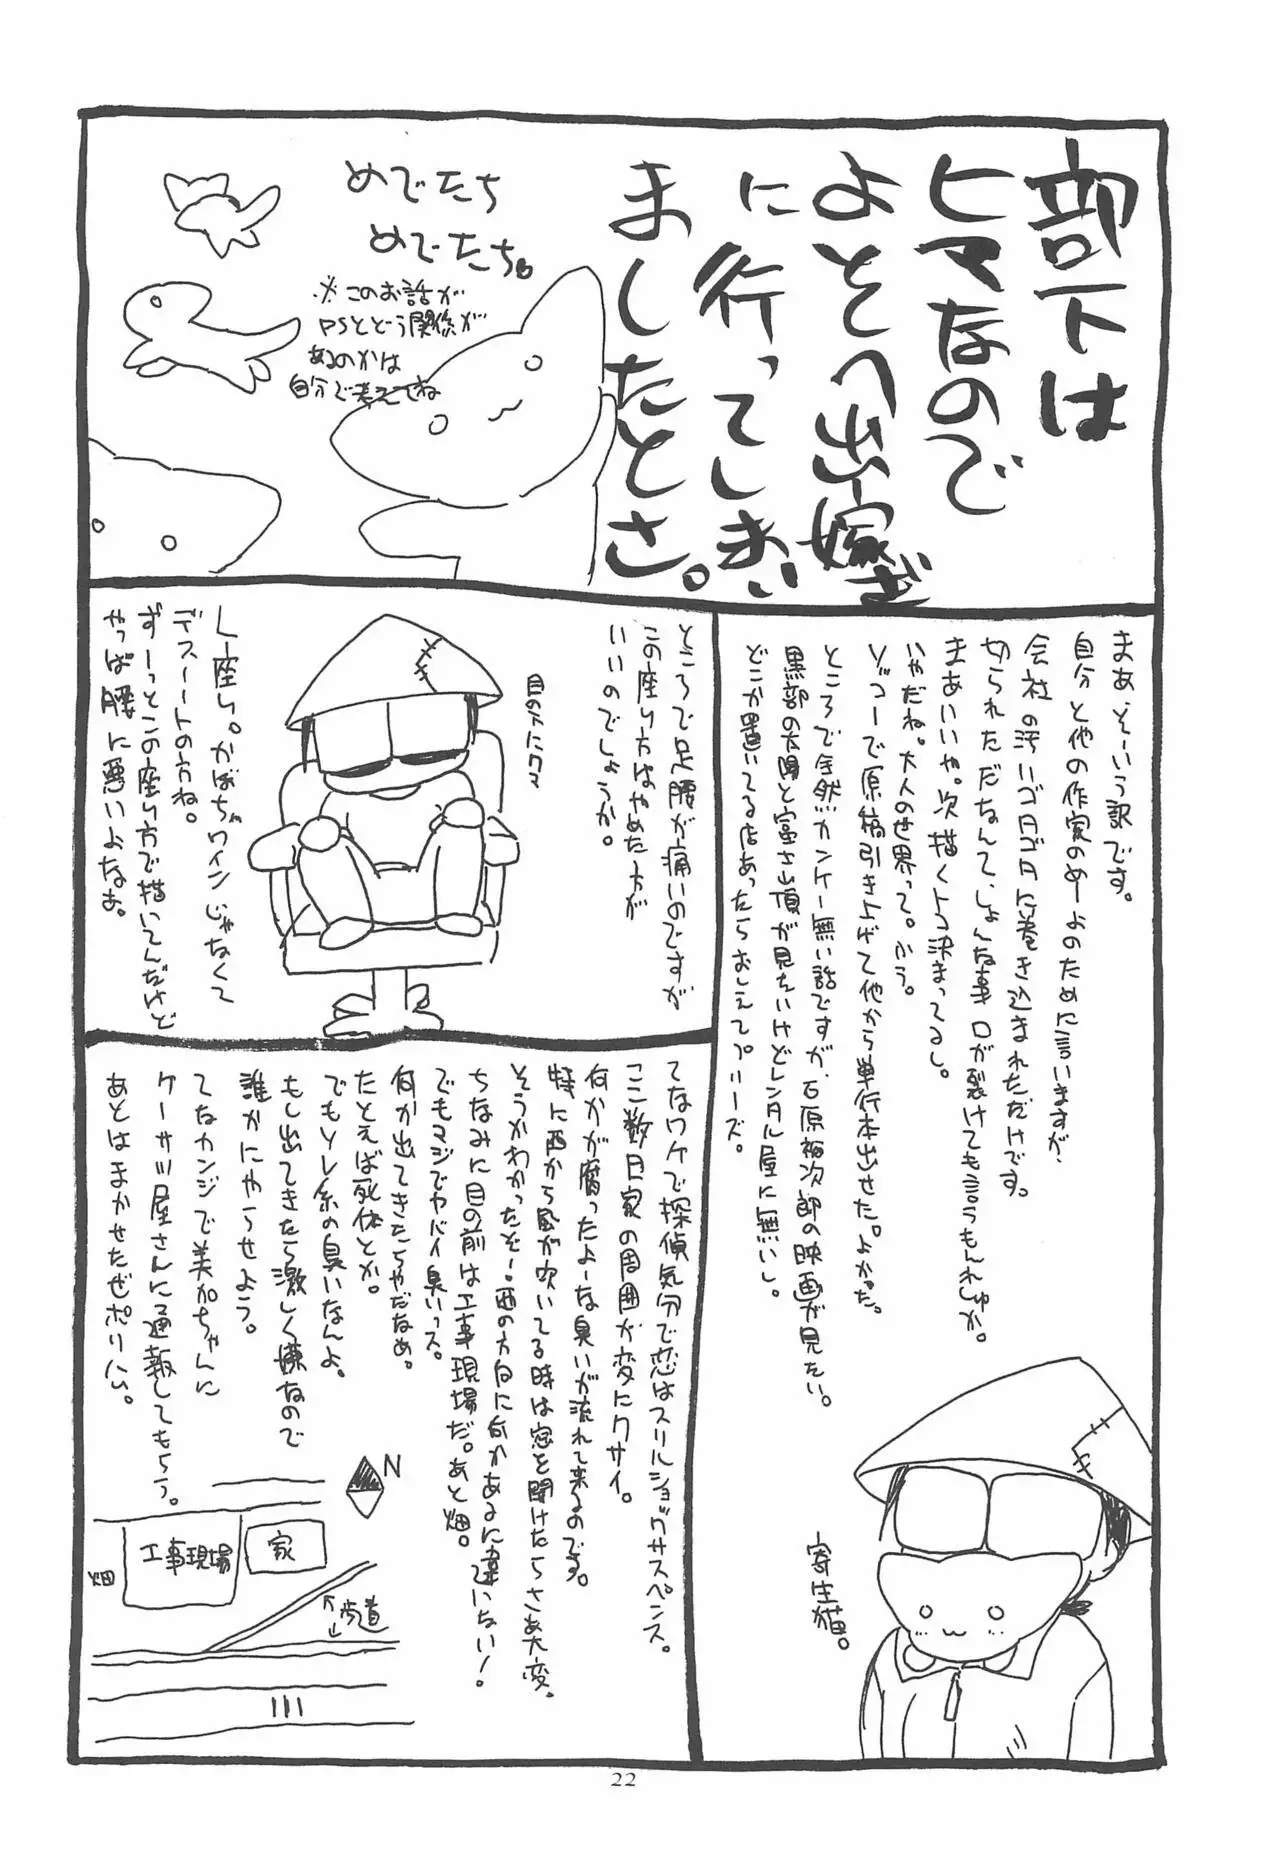 部下は
ヒマなので
よそへ出嫁ぎ
に行ってしまい
ましたとさ。
めでたち
めでたち。
※このお話が
PSとどう関係が
あるのかは
自分で考えてね
まあ、そーいう訳です。
自分と他の作家のめーよのために言いますが、
会社の汚いゴタゴタに巻き込まれただけです。
切られただなんて、しょんな事口が裂けても言うもんれしゅか。
まあいいや。次描くトコ決まってるし。
いやだね。大人の世界って。かう。
ソッコーで原稿引き上げて他から単行本出せた。よかった。
ところで全然カンケー無い話ですが、石原裕次郎の映画が見たい。
黒部の太陽と富士山頂が見たいけどレンタル屋に無いし。
どこか置いてる店あったらおしえてプリーズ。
寄生猫。
ところで足腰が痛いのですが
この座り方はやめた方が
いいのでしょうか。
目の下にクマ
L座り。かぼちゃワインじゃなくて
デスノートの方ね。
ずーっとこの座り方で描いてんだけど
やっぱ腰に悪いよなぁ。
てなワケで探偵気分で恋はスリルショックサスペンス。
ここ数日家の周囲が変にクサイ。
何かが腐ったよーな臭いが流れて来るのです。
特に西から風が吹いてる時は窓を開けたらさあ大変。
そうかわかったぞー。西の方向に何かあるに違いない!
ちなみに目の前は工事現場だ。あと畑。
でもマジでヤバイ臭いっス。
何か出てきたらやだなぁ。
たとえば死体とか。
でもソレ系の臭いなんよ。
もし出てきたら激しく嫌なので
誰かにやらせよう。
てなカンジで美加ちゃんに
ケーサツ屋さんに通報してもらう。
あとはまかせたぜポリ公。
N
家
工事現場
畑
歩道
22